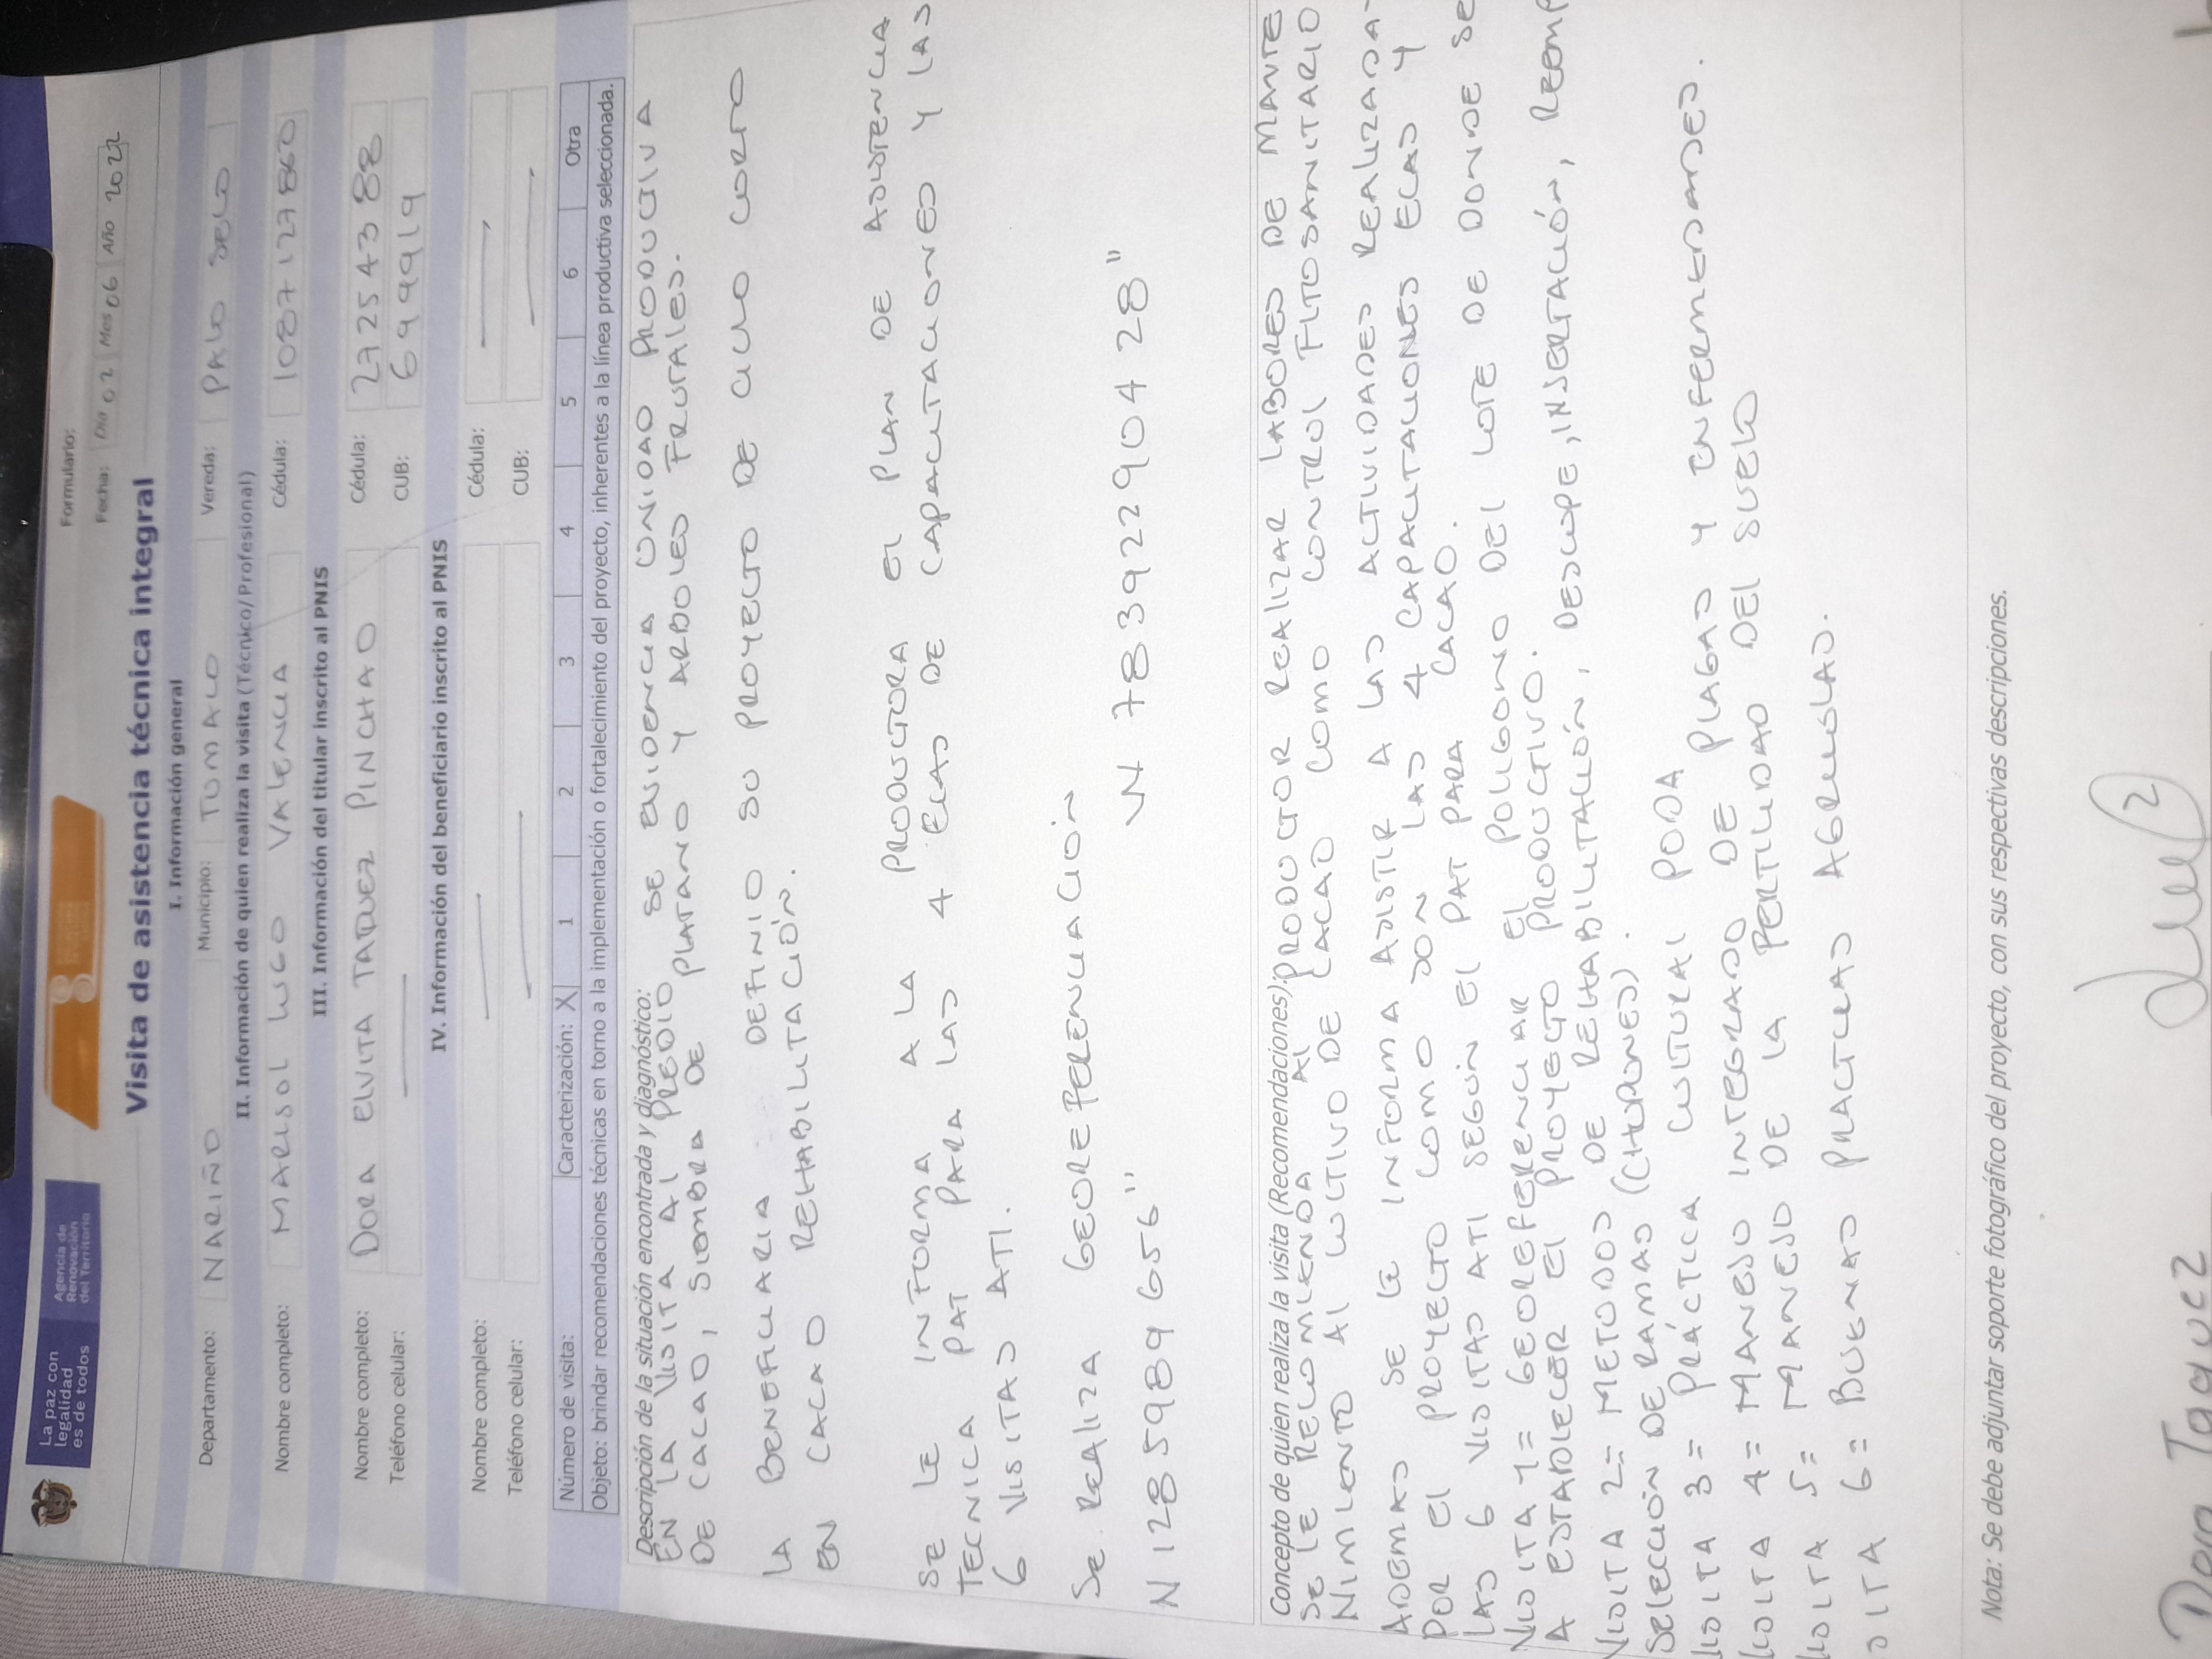 La paz con
legalidad
es de todos
Agencia de
Renovación
del Territorio
Formulario:
Fecha: Día 02 Mes 06 Año 2022
Visita de asistencia técnica integral
I. Información general
Departamento: NARIÑO Municipio: TUMACO Vereda: PALO SECO
II. Información de quien realiza la visita (Técnico/Profesional)
Nombre completo: MARISOL LUGO VALENCIA Cédula: 1087127860
III. Información del titular inscrito al PNIS
Nombre completo: DORA ELVITA TAQUEZ PINCHAO Cédula: 27254388
Teléfono celular: CUB: 6999919
IV. Información del beneficiario inscrito al PNIS
Nombre completo: Cédula:
Teléfono celular: CUB:
Número de visita: Caracterización: X 1 2 3 4 5 6 Otra
Objeto: brindar recomendaciones técnicas en torno a la implementación o fortalecimiento del proyecto, inherentes a la línea productiva seleccionada.
Descripción de la situación encontrada y diagnóstico:
EN LA VISITA AL PREDIO SE EVIDENCIA UNIDAD PRODUCTIVA
DE CACAO, SIEMBRA DE PLATANO Y ARBOLES FRUTALES.
LA BENEFICIARIA DEFINIO SU PROYECTO DE CICLO CORTO
EN CACAO REHABILITACIÓN.
SE LE INFORMA A LA PRODUCTORA EL PLAN DE ASISTENCIA
TECNICA PAT PARA LAS 4 ECAS DE CAPACITACIONES Y LAS
6 VISITAS ATI.
Se REALIZA GEOREFERENCIACIÓN
N 128598 9656" W 7839229 0428"
Concepto de quien realiza la visita (Recomendaciones):
SE LE RECOMIENDA AL PRODUCTOR REALIZAR LABORES DE MANTE
NIMIENTO AL CULTIVO DE CACAO COMO CONTROL FITOSANITARIO
ADEMAS SE LE INFORMA ASISTIR A LAS ACTIVIDADES REALIZADA
POR El PROYECTO COMO SON LAS 4 CAPACITACIONES ECAS Y
LAS 6 VISITAS ATI SEGÚN EL PAT PARA CACAO.
VISITA 1= GEOREFERENCIAR El POLIGONO DEL LOTE DE DONDE SE
A ESTABLECER El PROYECTO PRODUCTIVO.
VISITA 2= METODOS DE REHABILITACIÓN, DESCOPE, INJERTACIÓN,
SELECCIÓN DE RAMAS (CHUPONES).
VISITA 3= PRÁCTICA CULTURAL PODA
VISITA 4= MANEJO INTEGRADO DE PLAGAS Y ENFERMEDADES.
VISITA 5= MANEJO DE LA FERTILIDAD DEL SUELO
ISITA 6= BUENAS PRACTICAS AGRICOLAS.
Nota: Se debe adjuntar soporte fotográfico del proyecto, con sus respectivas descripciones.
Dora Taquez